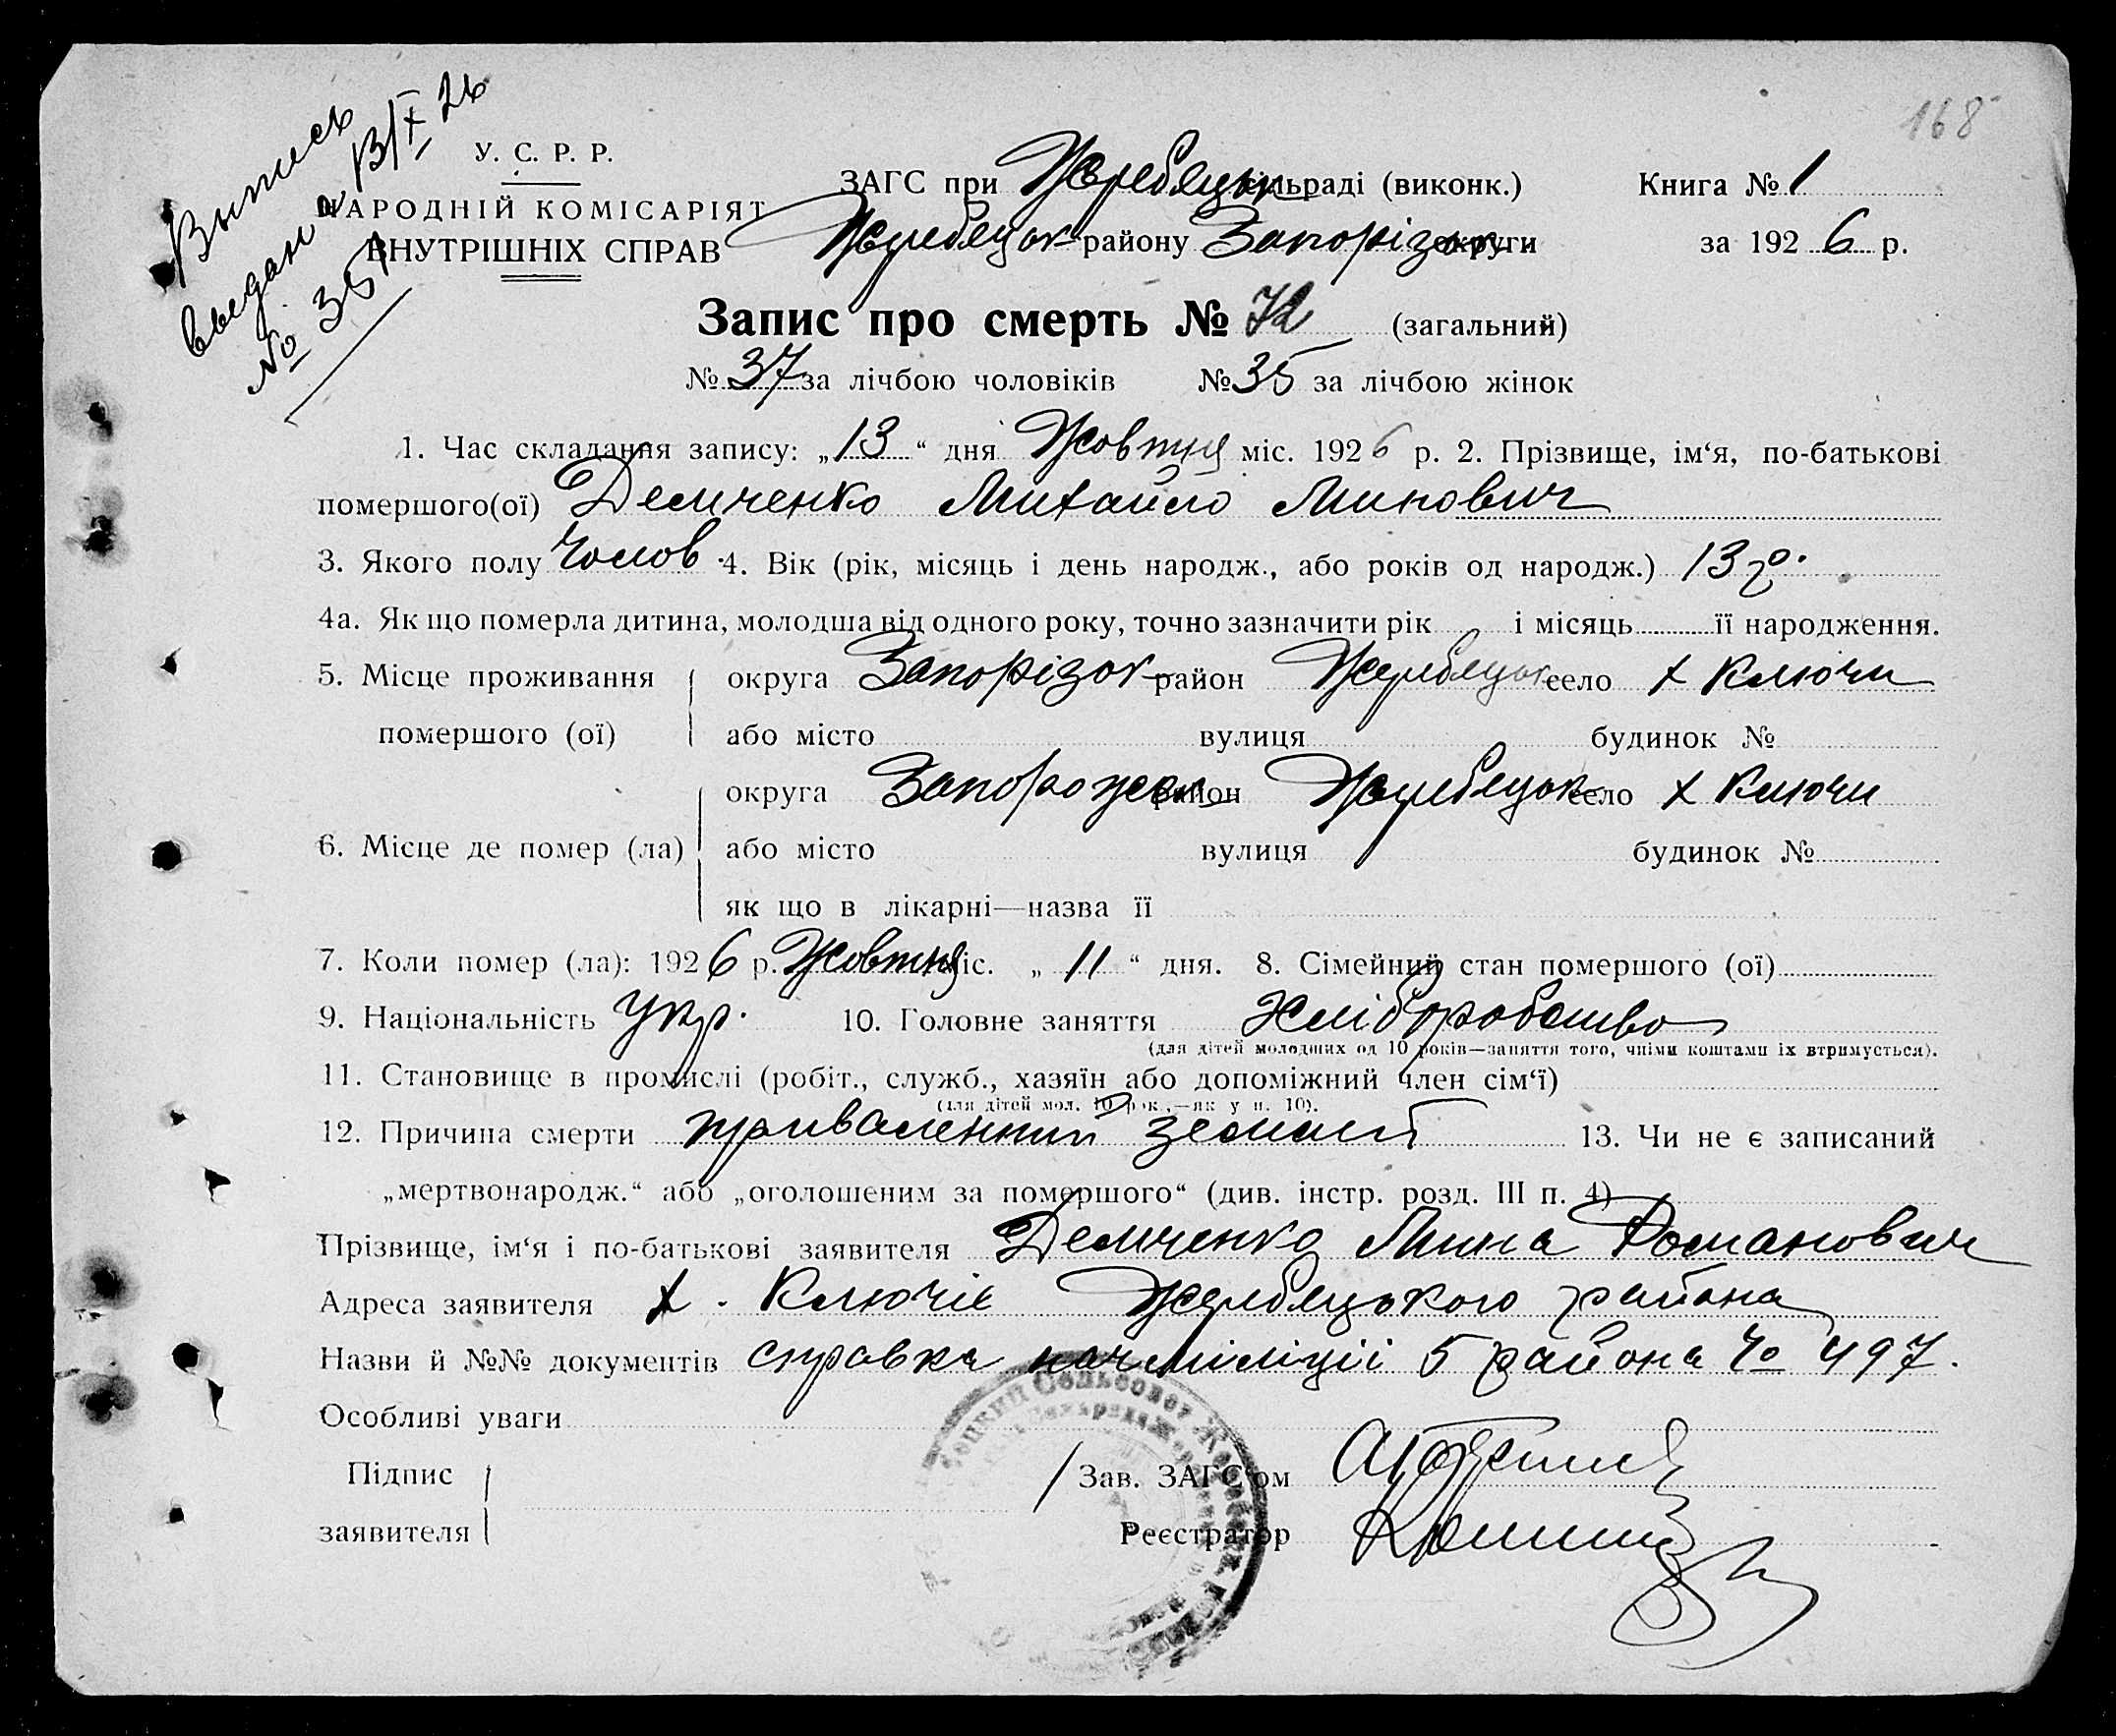 168
Выпись
выдана 13/X 26
№ 351
У. С. Р. Р.
НАРОДНІЙ КОМІСАРІЯТ
ВНУТРІШНІХ СПРАВ
ЗАГС при Жеребецьк сільраді (виконк.) Книга № 1
Жеребецьк району Запорізьк округи за 1926 р.
Запис про смерть № 72 (загальний)
№ 37 за лічбою чоловіків № 35 за лічбою жінок
1. Час складання запису: „13“ дня Жовтня міс. 1926 р. 2. Прізвище, ім‘я, по-батькові
помершого(ої) Демченко Михайло Минович
3. Якого полу Чолов 4. Вік (рік, місяць і день народж., або років од народж.) 13 р.
4а. Як що померла дитина, молодша від одного року, точно зазначити рік і місяць її народження.
5. Місце проживання округа Запорізьк район Жеребецьк село х Ключи
помершого (ої) або місто вулиця будинок №
округа Запорожск район Жеребецьк село х Ключи
6. Місце де помер (ла) або місто вулиця будинок №
як що в лікарні—назва її
7. Коли помер (ла): 1926 р. Жовтня міс. „11“ дня. 8. Сімейний стан помершого (ої)
9. Національність Укр. 10. Головне заняття Хліборобство
(для дітей молодших од 10 років—заняття того, чиїми коштами їх втримується).
11. Становище в промислі (робіт., служб., хазяїн або допоміжний член сім‘ї)
(для дітей мол. 10 рок.—як у п. 10).
12. Причина смерти приваленний землей 13. Чи не є записаний
„мертвонародж.“ або „оголошеним за помершого“ (див. інстр. розд. III п. 4)
Прізвище, ім‘я і по-батькові заявителя Демченко Мина Романович
Адреса заявителя х. Ключів Жеребецького района
Назви й №№ документів справка нач міліції 5 района № 497.
Особливі уваги
Підпис
заявителя
Зав. ЗАГС‘ом
Реєстратор
Сельсовет